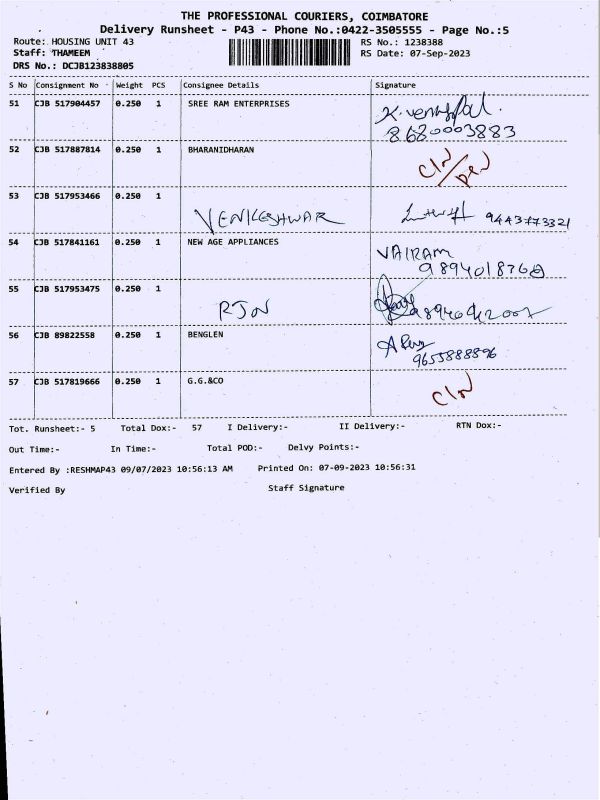 THE PROFESSIONAL COURIERS, COIMBATORE
Delivery Runsheet - P43 - Phone No.:0422-3505555 - Page No.:5
Route: HOUSING UNIT 43 RS No.: 1238388
Staff: THAMEEM RS Date: 07-Sep-2023
DRS No.: DCJB123838805
S No Consignment No Weight PCS Consignee Details Signature
51 CJB 517904457 0.250 1 SREE RAM ENTERPRISES
8680003883
52 CJB 517887814 0.250 1 BHARANIDHARAN
53 CJB 517953466 0.250 1
VENKESHWAR 9443773321
54 CJB 517841161 0.250 1 NEW AGE APPLIANCES
VAIRAM
9894018760
55 CJB 517953475 0.250 1
RJN
56 CJB 89822558 0.250 1 BENGLEN
9655888896
57 CJB 517819666 0.250 1 G.G.&CO
Tot. Runsheet:- 5 Total Dox:- 57 I Delivery:- II Delivery:- RTN Dox:-
Out Time:- In Time:- Total POD:- Delvy Points:-
Entered By :RESHMAP43 09/07/2023 10:56:13 AM Printed On: 07-09-2023 10:56:31
Verified By Staff Signature